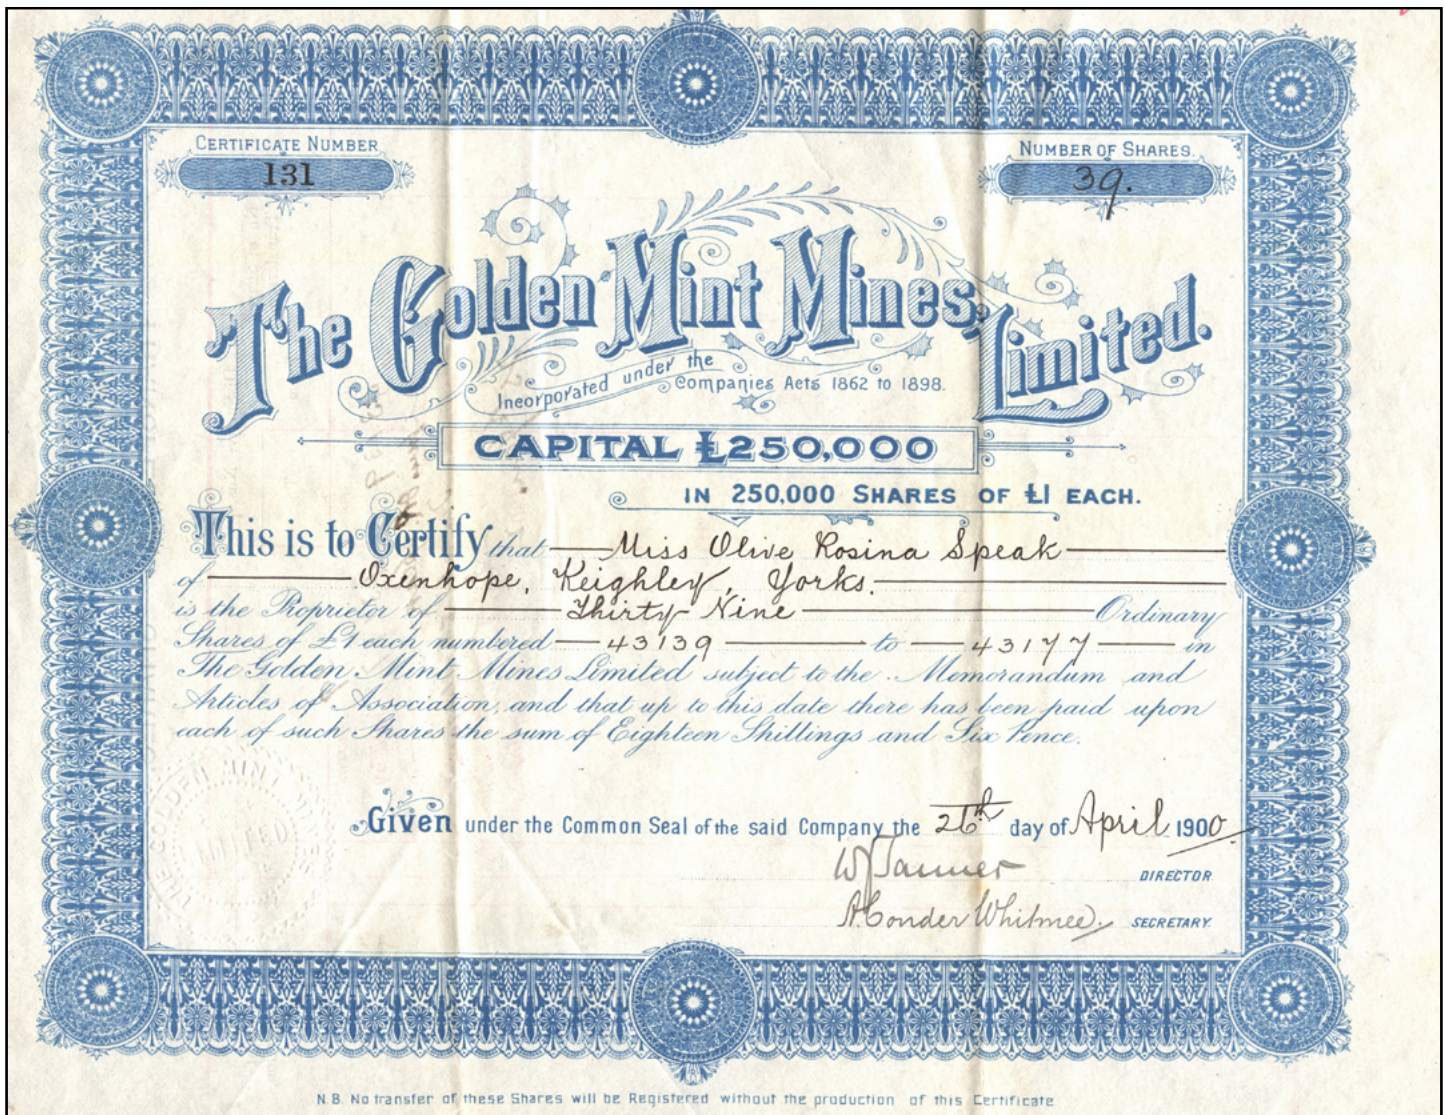 CERTIFICATE NUMBER
131
NUMBER OF SHARES.
39.
The Golden Mint Mines, Limited.
Incorporated under the Companies Acts 1862 to 1898.
CAPITAL £250,000
IN 250,000 SHARES OF £1 EACH.
This is to Certify that Miss Olive Rosina Speak
of Oxenhope, Keighley, Yorks.
is the Proprietor of Thirty Nine Ordinary
Shares of £1 each numbered 43139 to 43177 in
The Golden Mint Mines Limited subject to the Memorandum and
Articles of Association, and that up to this date there has been paid upon
each of such Shares the sum of Eighteen Shillings and Six Pence.
THE GOLDEN MINT MINES
LIMITED
Given under the Common Seal of the said Company the 26th day of April 1900
W Tanner DIRECTOR.
A. Conder Whitmee. SECRETARY.
N.B. No transfer of these Shares will be Registered without the production of this Certificate